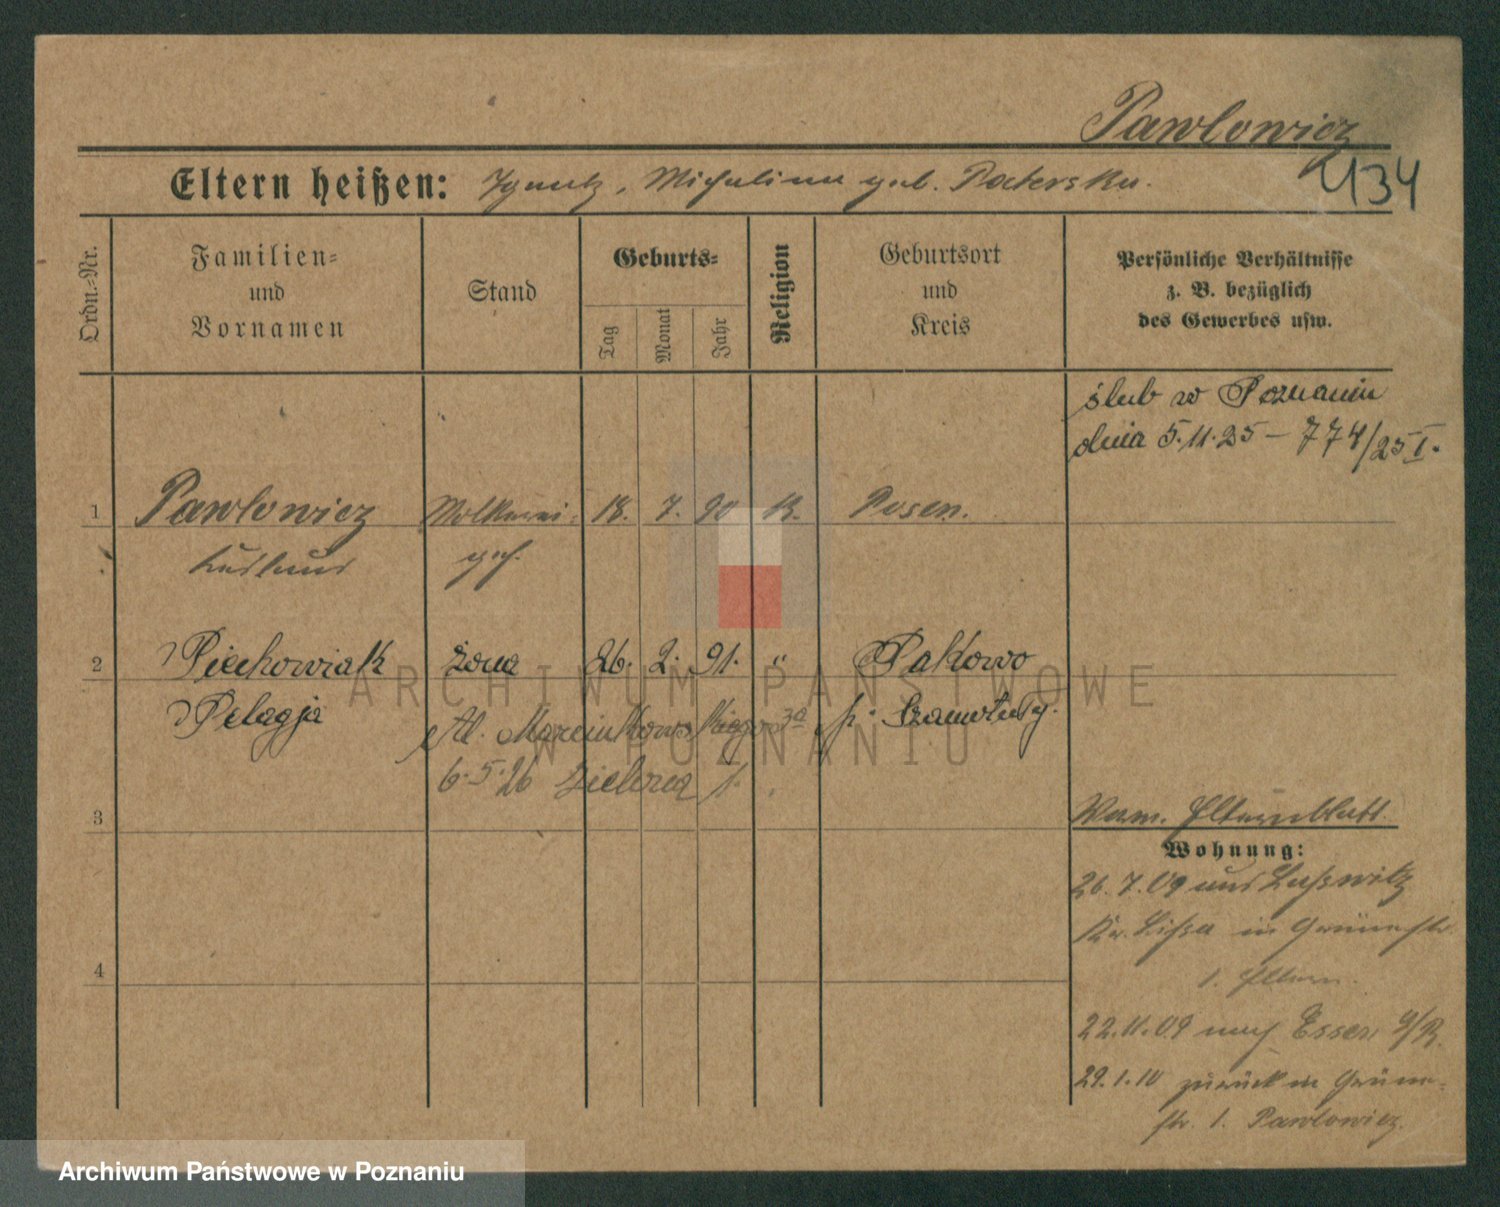 Pawlowicz
434
Eltern heißen: Ignatz, Michalina geb. Paterska.
Ordn.-Nr.
Familien-
und
Vornamen
Stand
Geburts-
Tag
Monat
Jahr
Religion
Geburtsort
und
Kreis
Persönliche Verhältnisse
z. B. bezüglich
des Gewerbes usw.
ślub w Poznaniu
dnia 5.11.25 – 774/25 I.
1 Pawlowicz Molkerei- 18. 7. 90 K. Posen.
geh.
2 Piechowiak żona 26. 2. 91. " Pakowo
Pelagja p. Szamotuły.
Al. Marcinkowskiego 3a
6.5.26 Zielona 1.
3
Vom. Elternblatt.
Wohnung:
26.7.09 aus Lußwitz
Kr. Lissa in Grünestr.
1. Eltern.
4
22.11.09 nach Essen a/R.
29.1.10 zurück in Grüne-
str. 1. Pawlowicz.
ARCHIWUM PAŃSTWOWE
W POZNANIU
Archiwum Państwowe w Poznaniu